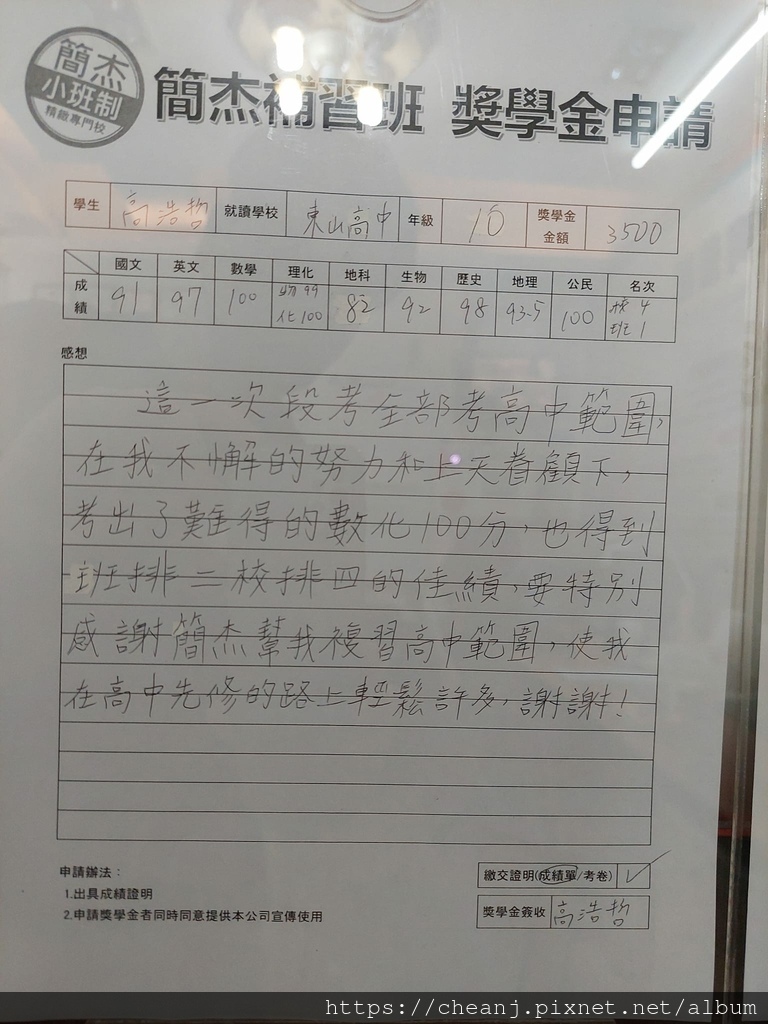 簡杰
小班制
精緻專門校
簡杰補習班 獎學金申請
學生 高浩哲 就讀學校 東山高中 年級 10 獎學金金額 3500
國文 英文 數學 理化 地科 生物 歷史 地理 公民 名次
成績 91 97 100 物99 化100 82 92 98 93.5 100 校4 班1
感想
這一次段考全部考高中範圍,
在我不懈的努力和上天眷顧下,
考出了難得的數化100分,也得到
班排二校排四的佳績,要特別
感謝簡杰幫我複習高中範圍,使我
在高中先修的路上輕鬆許多,謝謝!
申請辦法:
1.出具成績證明
2.申請獎學金者同時同意提供本公司宣傳使用
繳交證明(成績單/考卷) ✓
獎學金簽收 高浩哲
https://cheanj.pixnet.net/album